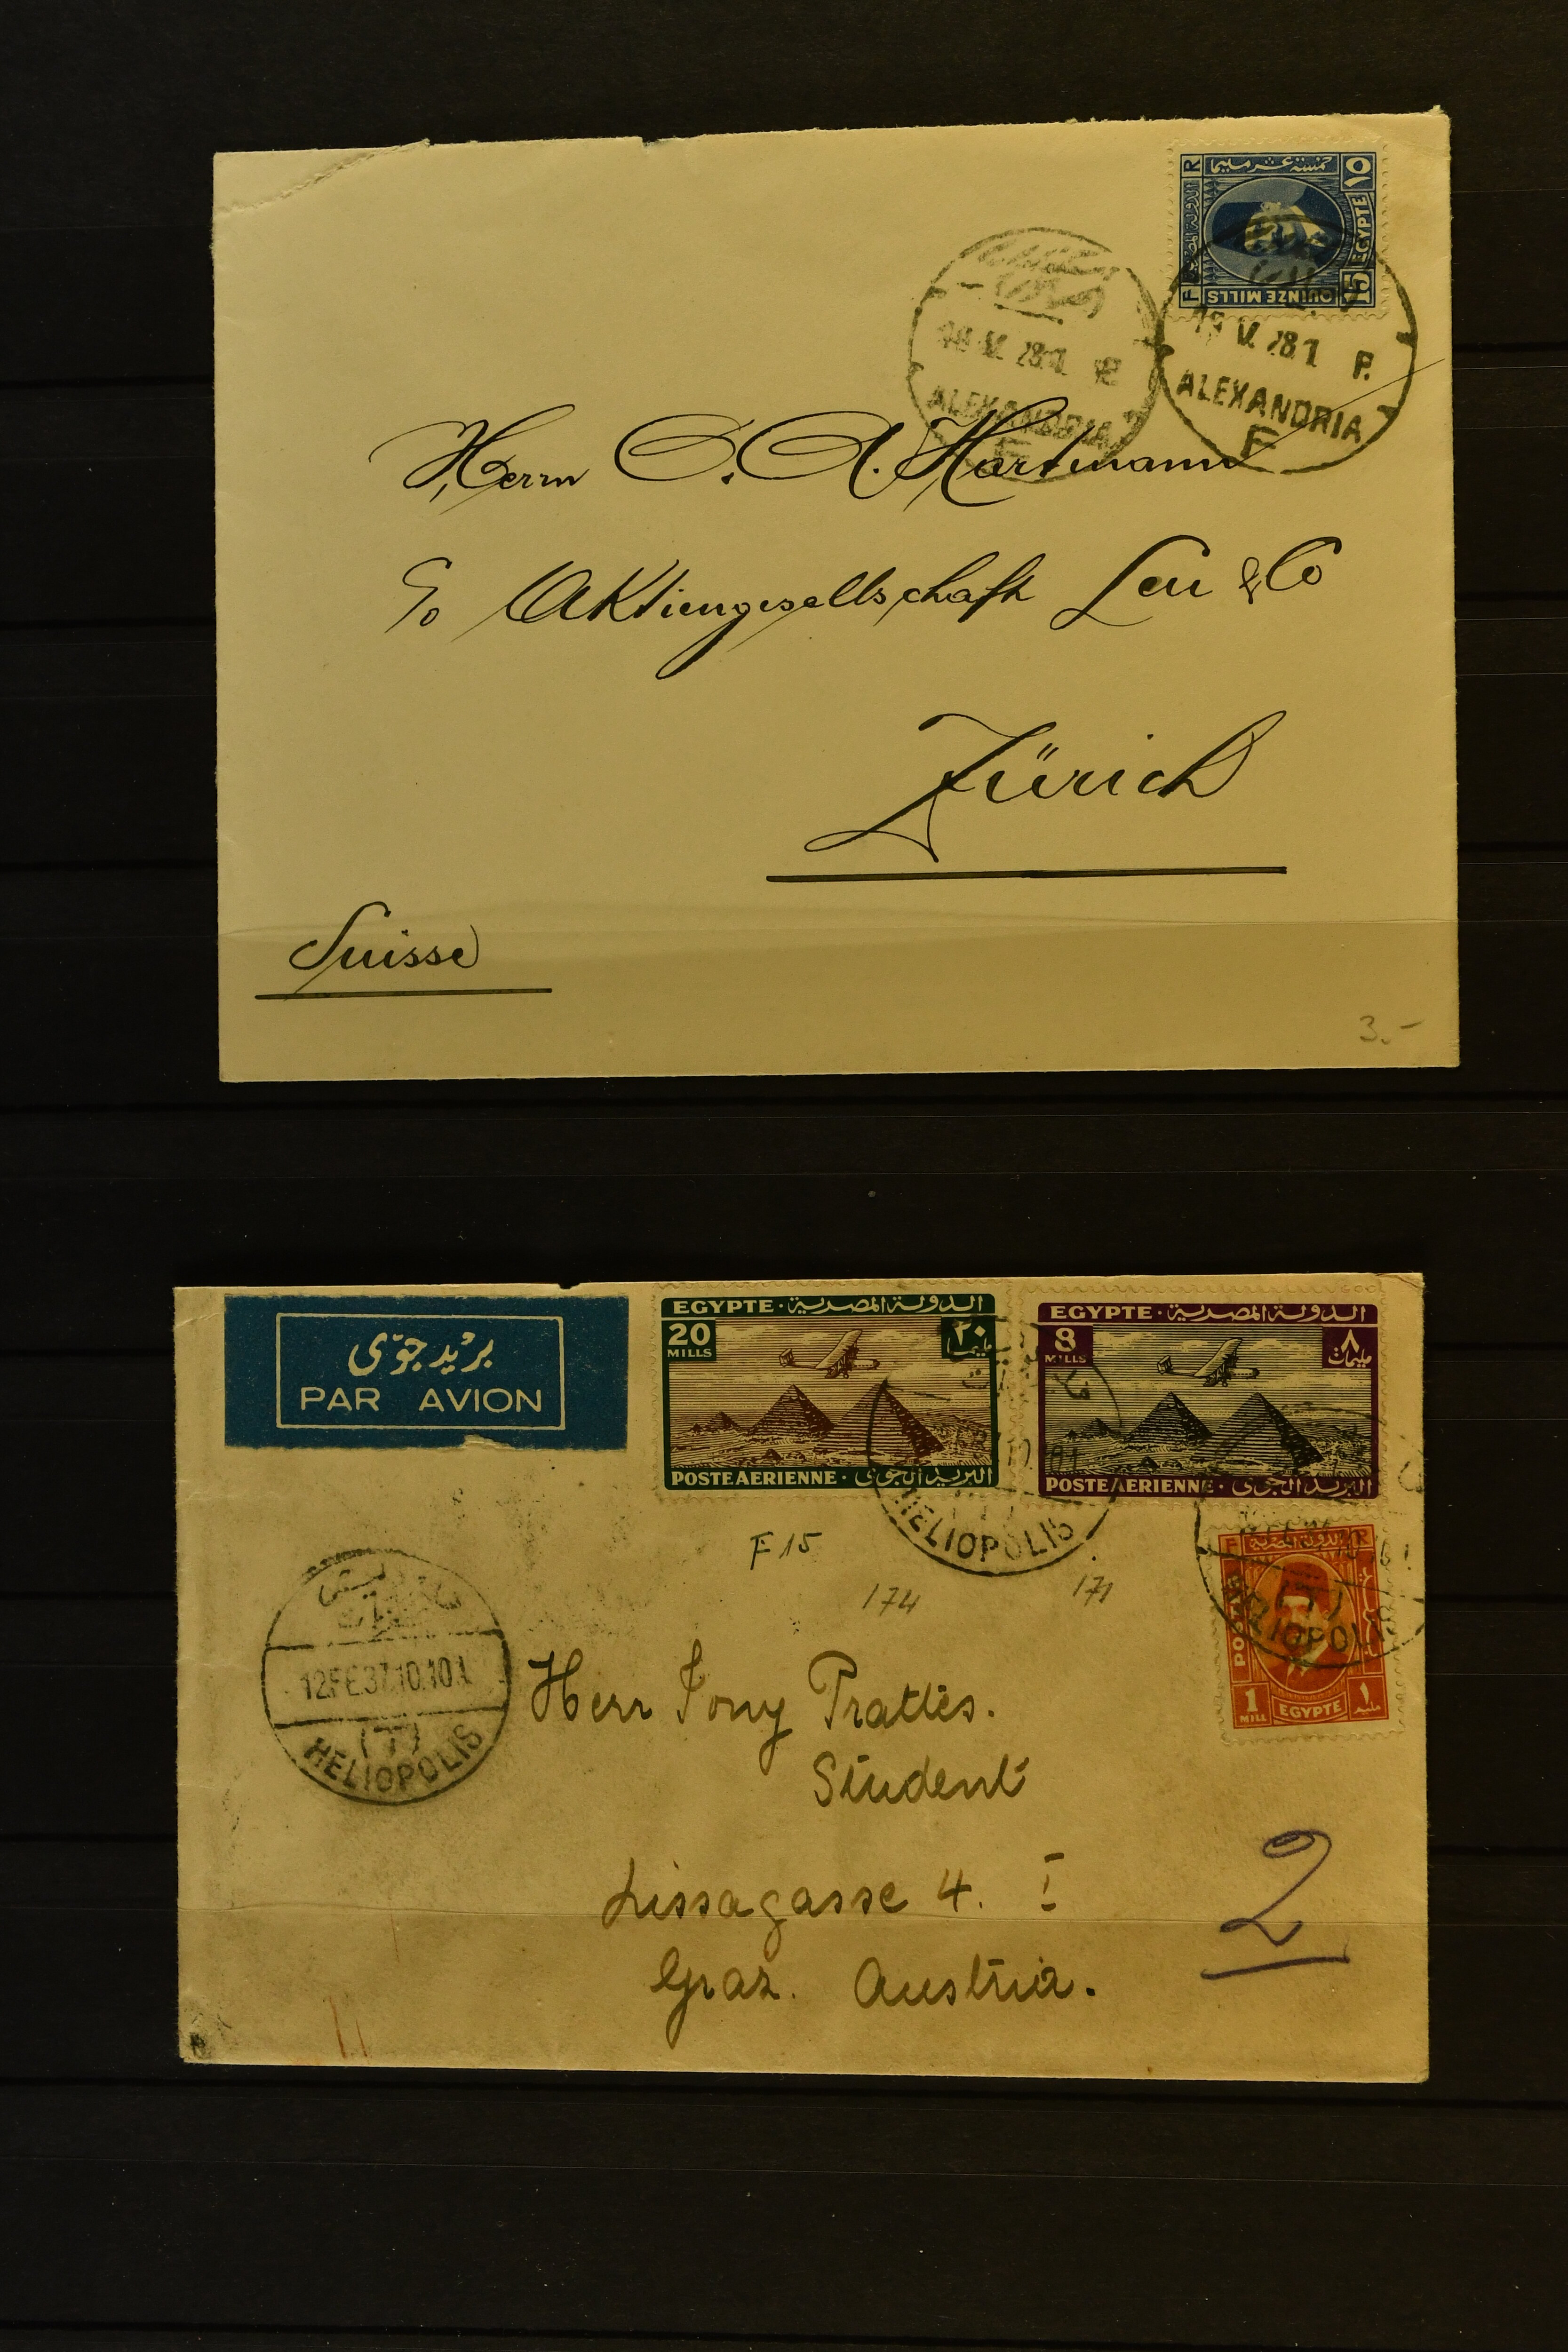 خمسة عشر مليما
١٥
R
F
EGYPTE
15
QUINZE MILLS
V. 28.1 P.
ALEXANDRIA
F
V. 28.1
ALEXANDRIA
Herrn A. Hartmann
c/o Aktiengesellschaft Leu & Co
Zürich
Suisse
3.-
بريد جوى
PAR AVION
EGYPTE · الدولة المصرية
20 MILLS ٢٠ مليما
POSTE AERIENNE · البريد الجوى
EGYPTE · الدولة المصرية
8 MILLS ٨ مليمات
POSTE AERIENNE · البريد الجوى
HELIOPOLIS
F 15
174
171
الدولة المصرية
POSTES
1 MILL EGYPTE ١ مليم
HELIOPOLIS
12.FE.37.10.10
HELIOPOLIS
Herr Tony Prattes.
Student
Lissagasse 4. I
Graz. Austria.
2